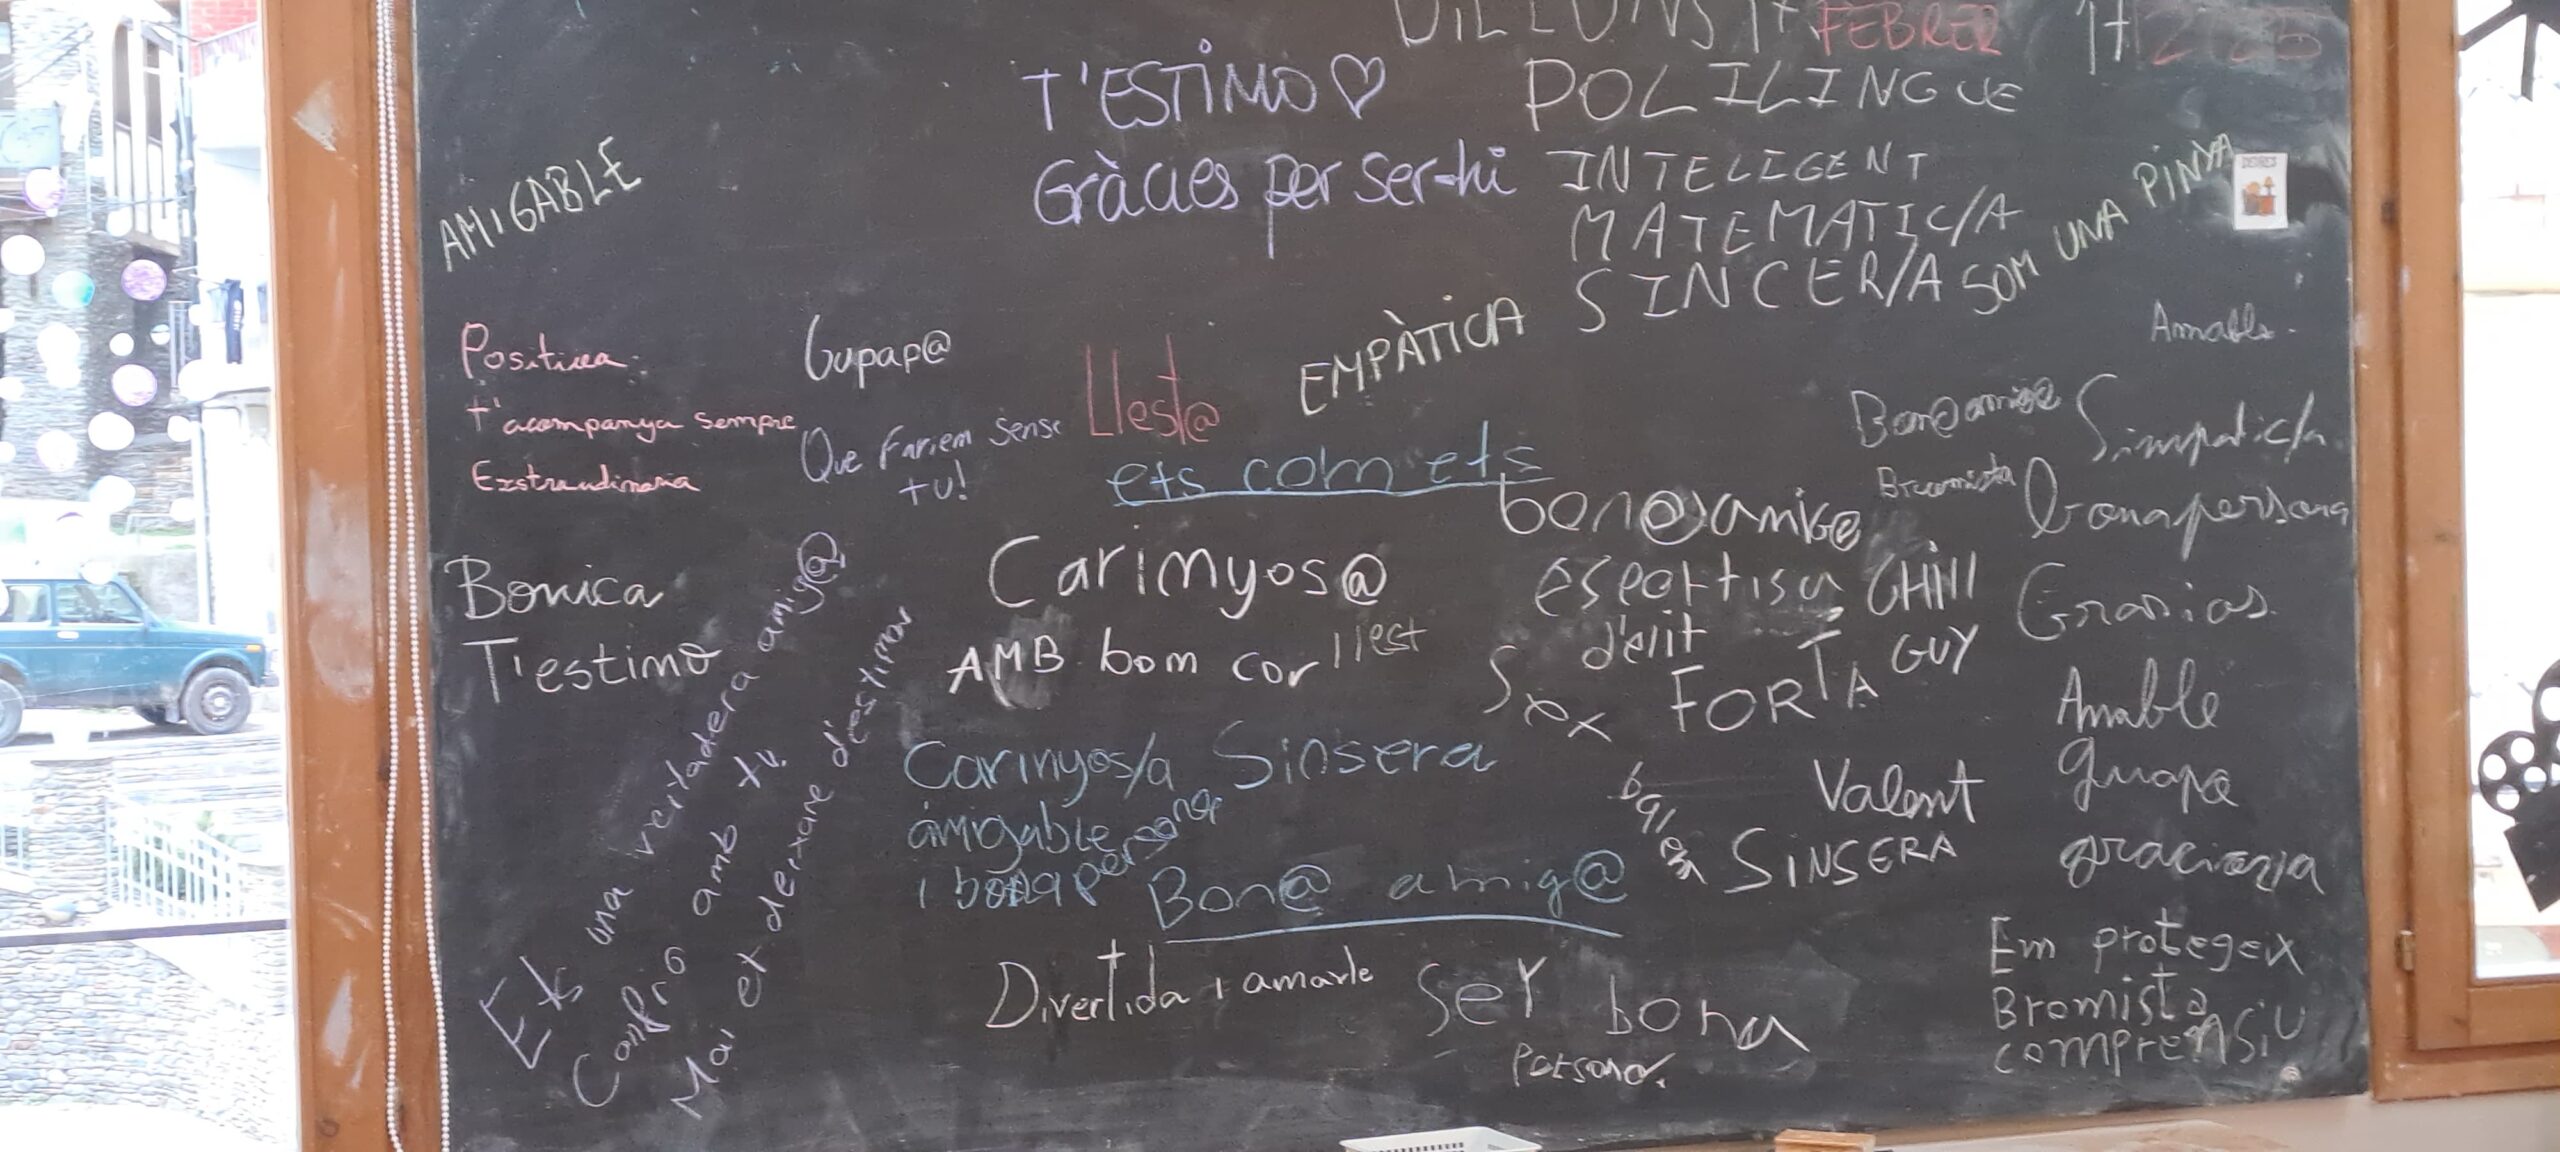 DILLUNS 17 FEBRER
T'ESTIMO
Gràcies per ser-hi
POLILINGUE
INTELIGENT
MATEMATIC/A
SINCER/A
SOM UNA PINYA
DEURES
AMIGABLE
Positiva
t'acompanya sempre
Gupap@
Que fariem sense
tu!
Llest@
EMPÀTICA
ets com ets
Bonica
T'estimo
Ets una vertadera amig@
Confio amb tu
Mai et deixare d'estimar
Carinyos@
AMB bom cor
llest
Carinyos/a Sinsera
amigable
i bona persona
Bon@ amig@
Divertida i amable
Ser bona
persona
Bon@ amig@
bon@ amig@
esportista
d'elit
CHILL
GUY
FORTA
Valent
SINSERA
Amable
Simpatic/a
bona persona
Gracias
Amable
guapa
Em protegeix
Bromista
comprensiu